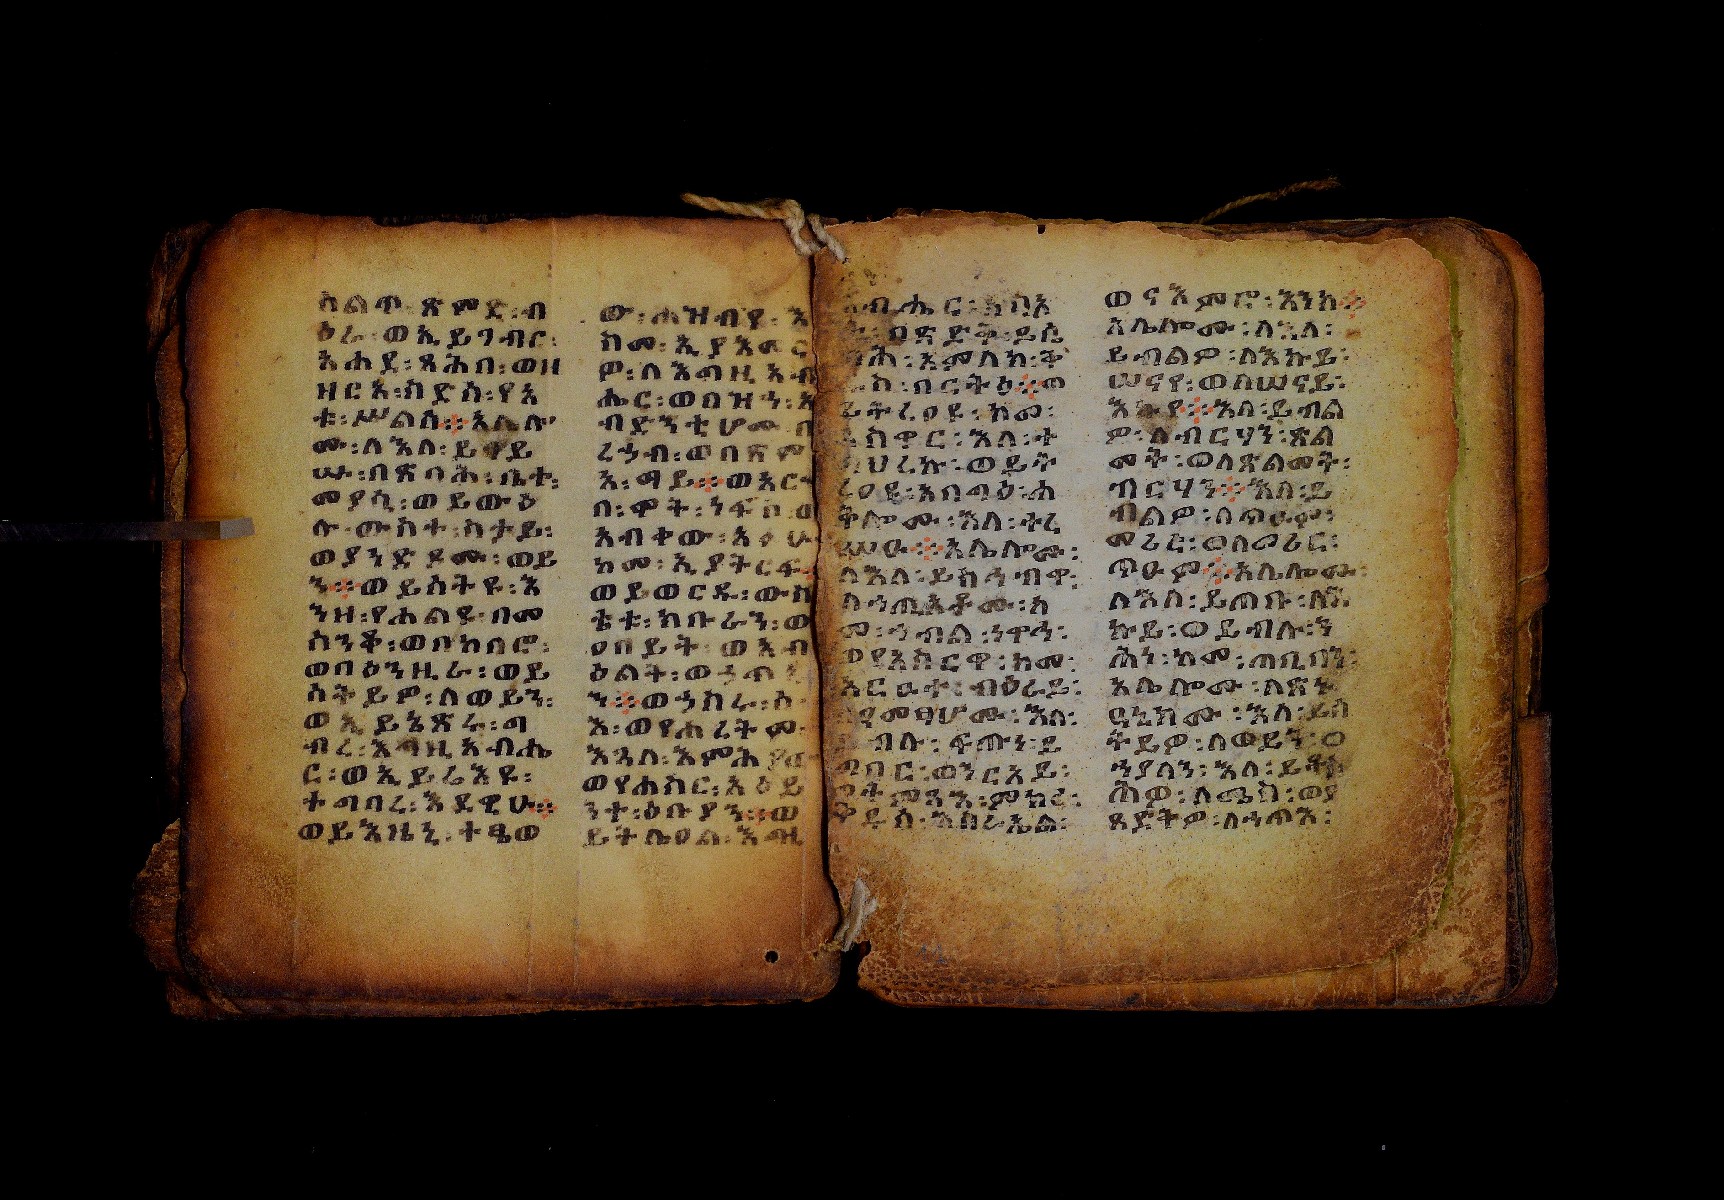 ስልጥ፡ ጽምደ፡ ብ
ዕራ፡ ወኢይገብር፡
አሐደ፡ ጻሕበ፡ ወዘ
ዘርአ፡ ስድስ፡ የአ
ቱ፡ ሥልሰ፨ አሌሎ
ሙ፡ ለእለ፡ ይዋይ
ሡ፡ በጽባሕ፡ ቤተ፡
መያሲ፡ ወይውዕ
ሉ፡ ውስተ፡ ስታይ፡
ወያንድዶሙ፡ ወይ
ን፨ ወይሰትዩ፡ እ
ንዘ፡ የሐልዩ፡ በመ
ሰንቆ፡ ወበከበሮ፡
ወበዕንዚራ፡ ወይ
ሰትይዎ፡ ለወይን፡
ወኢይኔጽሩ፡ ግ
ብረ፡ እግዚአብሔ
ር፡ ወኢይሬእዩ፡
ተግባረ፡ እደዊሁ፨
ወይእዜኒ፡ ተፄወ
ው፡ ሕዝብየ፡ እ
ስመ፡ ኢያእመር
ዎ፡ ለእግዚአብ
ሔር፡ ወበዝኀ፡ አ
ብድንቲሆሙ፡ በ
ረኃብ፡ ወበጽም
አ፡ ማይ፨ ወአር
በ፡ ሞት፡ ነፍሶ፡ ወ
አብቀወ፡ አፉሁ
ከመ፡ ኢያትርፍ፨
ወይወርዱ፡ ውስ
ቴቱ፡ ክቡራን፡ ወ
ዐበይት፡ ወአብ
ዕልት፡ ወኃጥ
ን፨ ወኃስረ፡ ሰብ
እ፡ ወየሐረትሙ
እጓለ፡ እምሕያው
ወየሐስር፡ አዕይ
ንተ፡ ዕቡያን፨ ወ
ይትሌዐል፡ እግዚ
አብሔር፡ ጸባኦ
ት፡ በጽድቅ፡ ይሴ
ባሕ፡ አምላክ፡ ቅ
ዱስ፡ በርትዕ፨ ወ
ይትረዐዩ፡ ከመ፡
አስዋር፡ እለ፡ ተ
በህረኩ፡ ወይት
ረዐዩ፡ አባግዕ፡ ሐ
ቅሎሙ፡ እለ፡ ተረ
ሥዑ፨ አሌሎሙ፡
ለእለ፡ ይስሕብዋ፡
ለኀጢአቶሙ፡ ከ
መ፡ ኀብል፡ ነዋኅ፡
ወየአስርዋ፡ ከመ፡
አርዑተ፡ ብዕራይ፡
እለ፡
ይብሉ፡ ፍጡነ፡ ይ
ግበር፡ ወንርአይ፡
ወትምጻእ፡ ምክረ፡
ቅዱሰ፡ እስራኤል፡
ወናእምሮ፡ እንከ፨
አሌሎሙ፡ ለእለ፡
ይብልዎ፡ ለእኩይ፡
ሠናየ፡ ወለሠናይ፡
እኩየ፨ እለ፡ ይብል
ዎ፡ ለብርሃን፡ ጽል
መት፡ ወለጽልመት፡
ብርሃን፨ እለ፡ ይ
ብልዎ፡ ለጥዑም፡
መሪር፡ ወለመሪር፡
ጥዑም፨ አሌሎሙ፡
ለእለ፡ ይጠቡ፡ ለእ
ኩይ፡ ወይብሉ፡ ን
ሕነ፡ ከመ፡ ጠቢባን፡
አሌሎሙ፡ ለጽኑ
ዓኒክሙ፡ እለ፡ ይሰ
ትይዎ፡ ለወይን፡ ወ
ኀያላን፡ እለ፡ ይቶስ
ሕዎ፡ ለሜስ፡ ወያ
ጸድቅዎ፡ ለኀጥእ፡